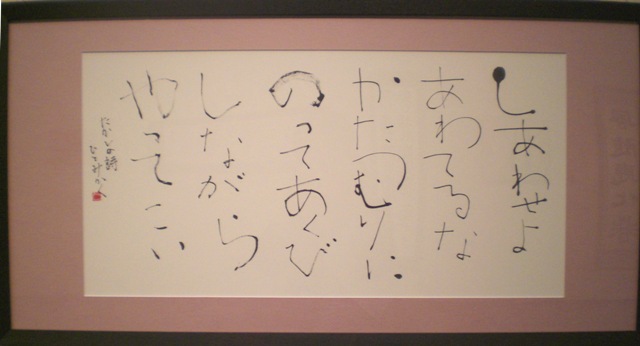 しあわせよ
あわてるな
かたつむりに
のってあくび
しながら
やってこい